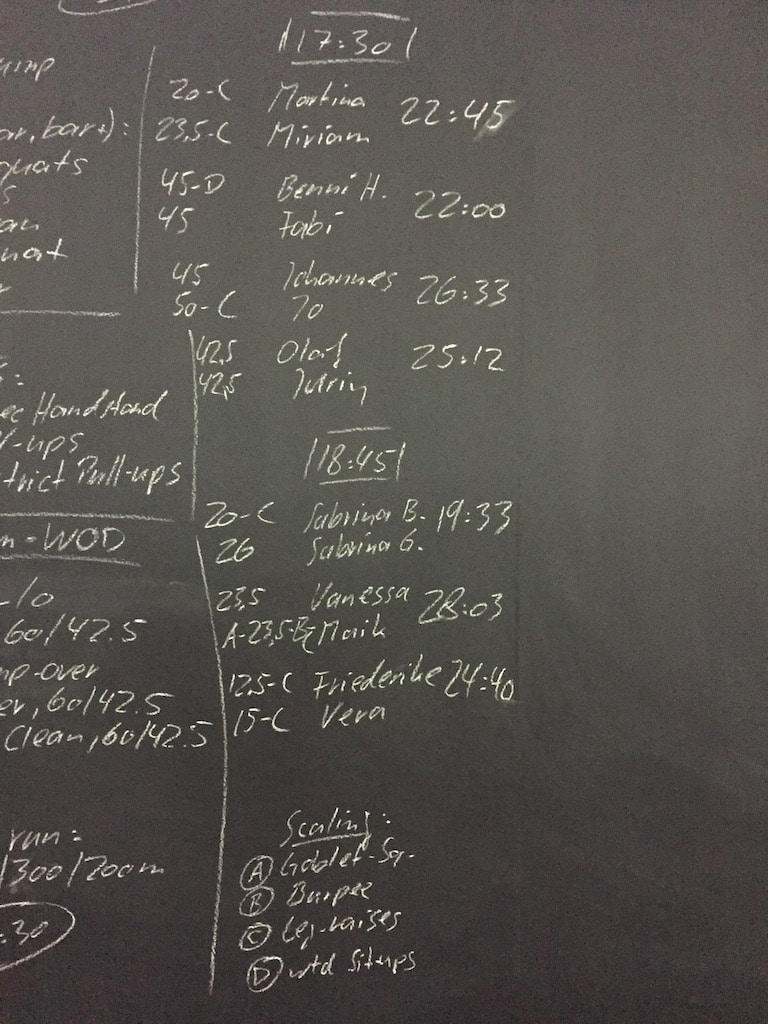 17:30
20-C Martina 22:45
23,5-C Miriam
45-D Benni H. 22:00
45 Fabi
45 Johannes 26:33
50-C Jo
42,5 Olaf 25:12
42,5
18:45
20-C Sabrina B. 19:33
26 Sabrina G.
23,5 Vanessa 28:03
A-23,5-B Maik
12,5-C Friederike 24:40
15-C Vera
Scaling:
A Goblet-Sq.
B Burpee
C Leg-raises
D wtd Situps
ar, bar+):
quats
an
uat
Handstand
-ups
trict Pull-ups
n-WOD
60/42.5
mp-over
er, 60/42.5
Clean, 60/42.5
run:
/300/200m
:30